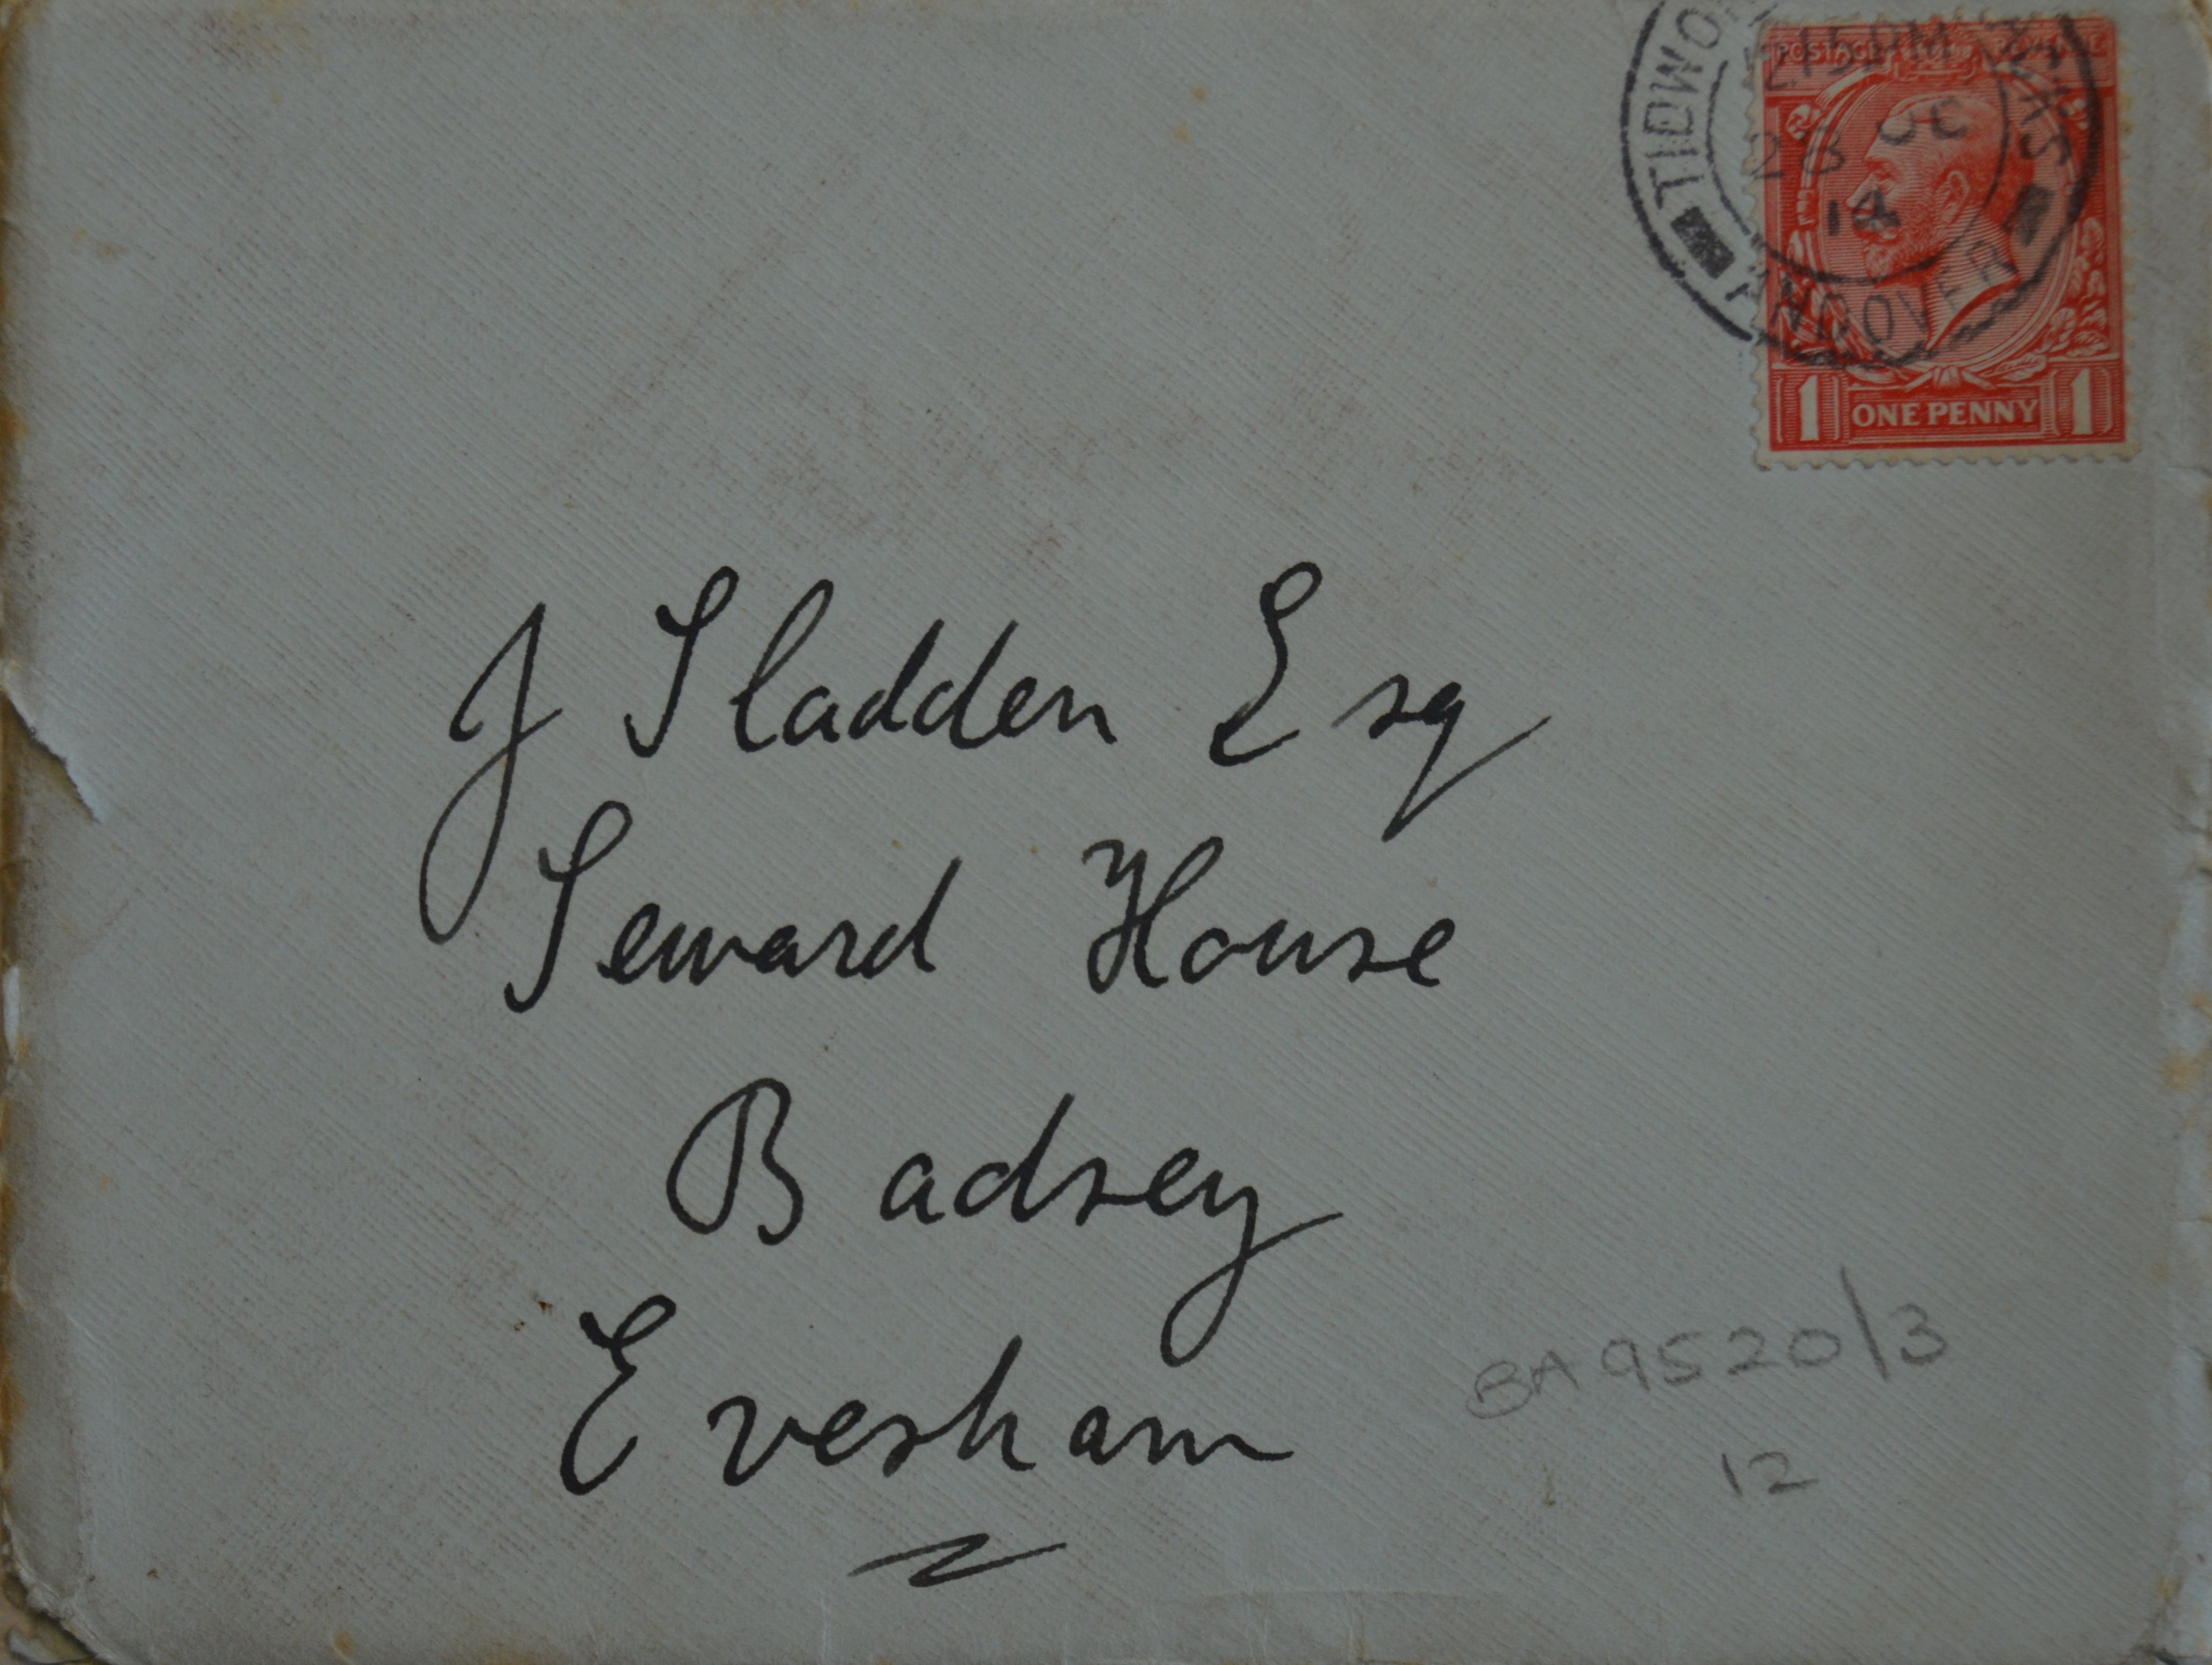 12.15 PM
28 OC
14
ANDOVER
POSTAGE REVENUE
1 ONE PENNY 1
J Sladden Esq
Seward House
Badsey
Evesham
BA 9520/3
12